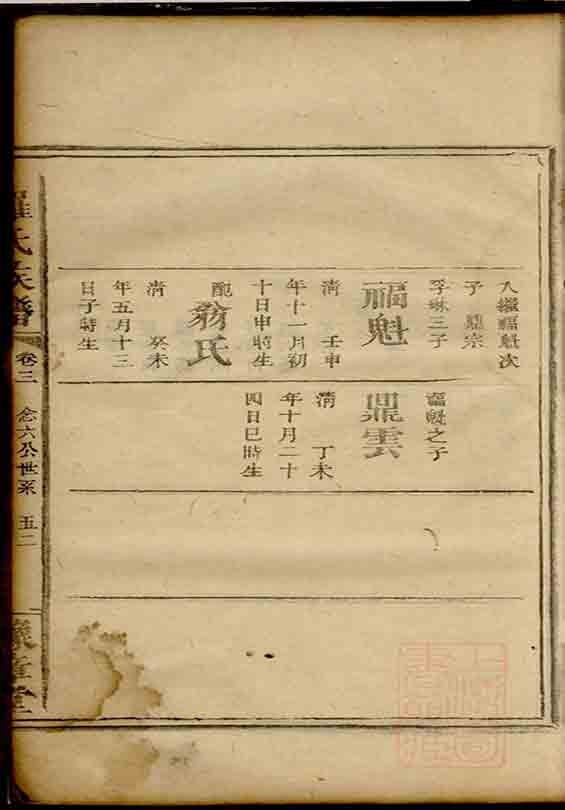 入繼福魁次
子鼎宗
孚琳三子
福魁
清 壬申
年十一月初
十日申時生
配翁氏
清 癸未
年五月十三
日子時生
福魁之子
鼎雲
清 丁未
年十月二十
四日巳時生
羅氏族譜
卷三 念六公世系 五二